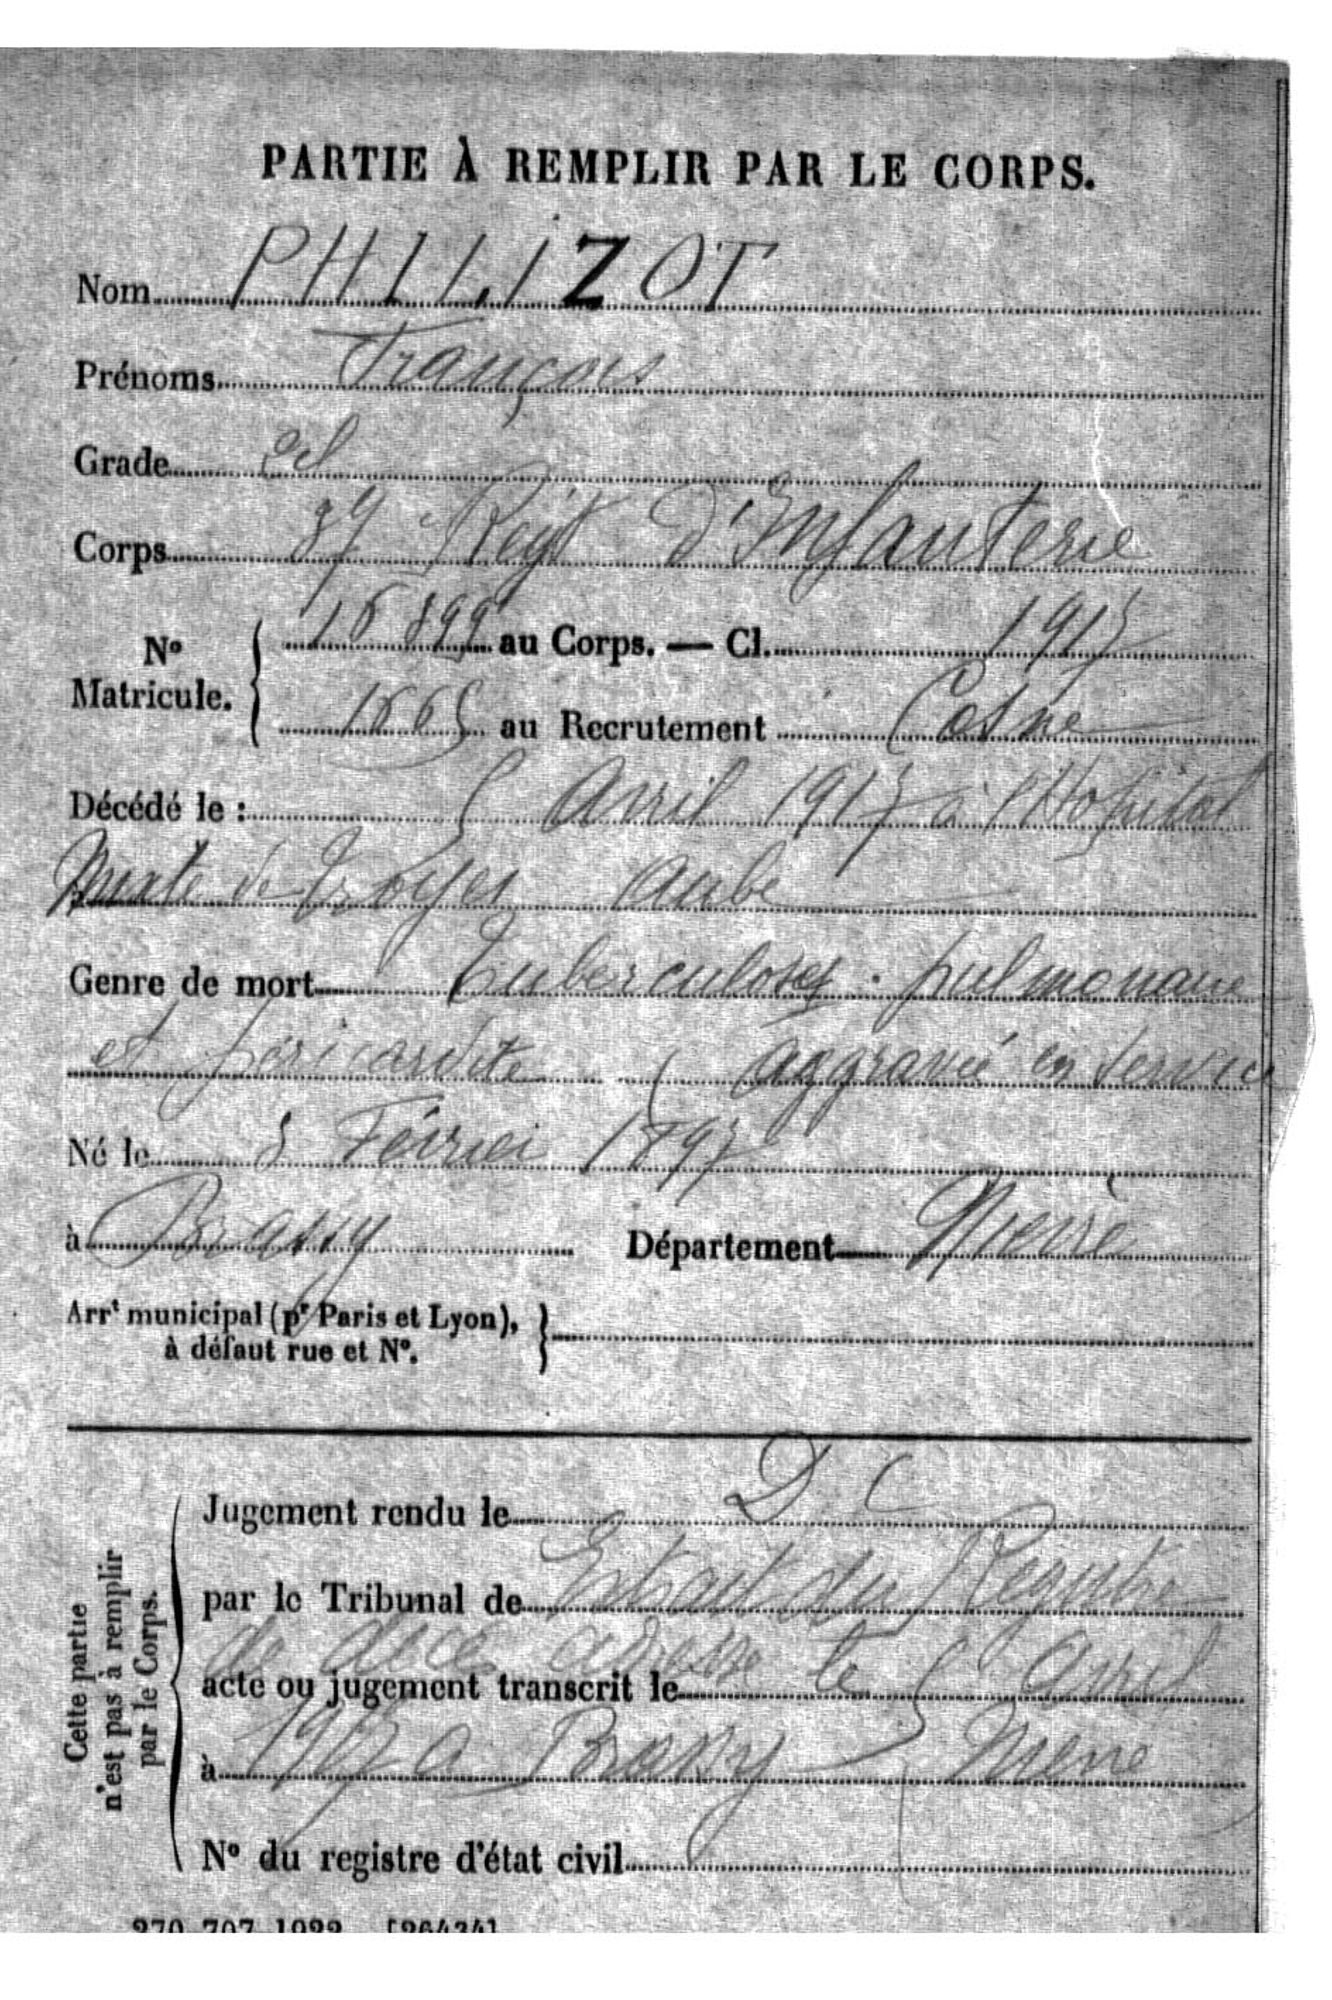 PARTIE À REMPLIR PAR LE CORPS.
Nom PHILIZOT
Prénoms François
Grade
Corps 37e Regt d'Infanterie
No Matricule. { 16899 au Corps. — Cl. 1917
1665 au Recrutement Cosne
Décédé le : 5 Avril 1917 à l'Hopital
Mixte de Troyes Aube
Genre de mort Tuberculose pulmonaire
et péricardite aggravée en Service
Né le 5 Février 1897
à Brassy Département Nièvre
Arrt municipal (pr Paris et Lyon), à défaut rue et No. }
Cette partie n'est pas à remplir par le Corps.
Jugement rendu le D. C
par le Tribunal de Extrait du Registre
de décès adressé le 5 Avril
acte ou jugement transcrit le
à 1917 a Brassy Nièvre
No du registre d'état civil
270-707-1922. [26434]